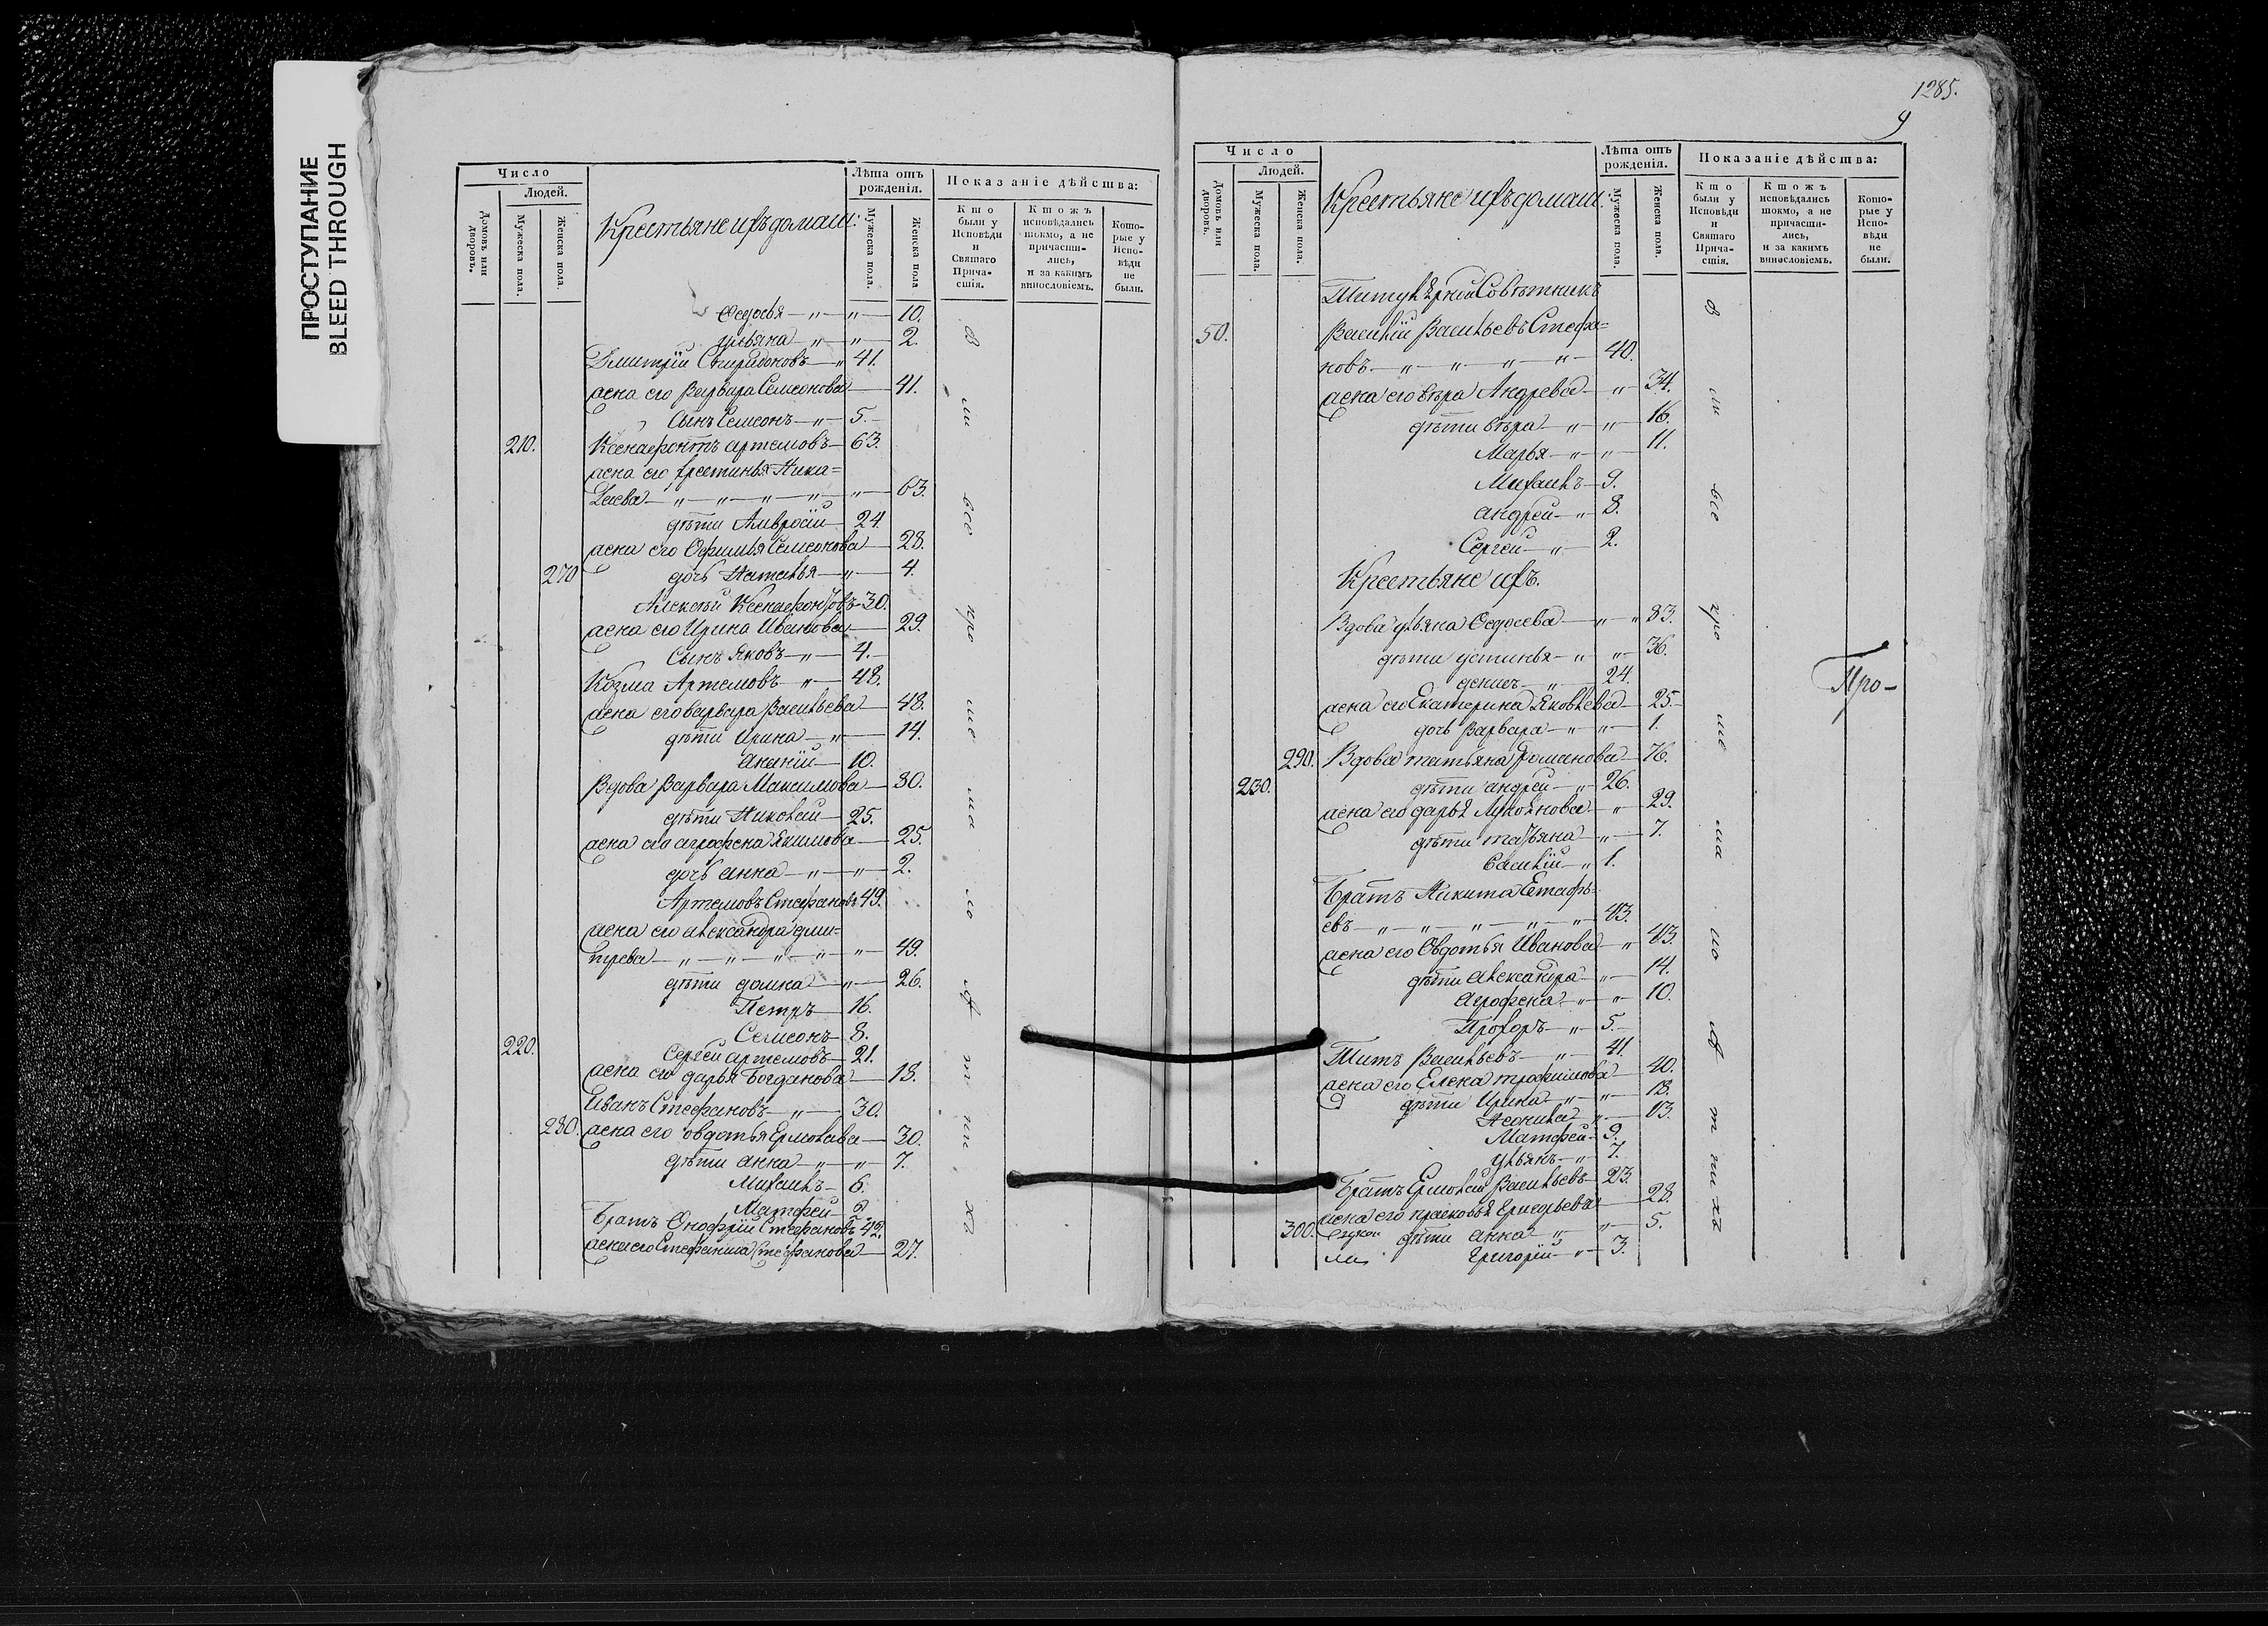 ПРОСТУПАНИЕ
BLEED THROUGH
Число
Людей.
Домовъ или дворовъ.
Мужеска пола.
Женска пола.
Крестьяне ихъ домаш:
Лѣта отъ рожденія.
Мужеска пола.
Женска пола
Показаніе дѣйства:
Кто были у Исповѣди и Святаго Причастія.
Ктожъ исповѣдались токмо, а не причастились, и за какимъ винословіемъ.
Которые у Исповѣди не были.
Ѳедосья — " — " — 10.
Ульяна " — " — 2.
Дмитрій Спиридоновъ — " 41.
жена его Варвара Семеонова — 41.
Сынъ Семеонъ — " — 5.
210. Ксенафонтъ Артемовъ — 63.
жена его Хрестинья Ника=
лаева — " — " — " — " — " — 63.
дѣти Амвросій — 24.
жена его Офимья Семеонова — 28.
270 дочь Наталья — " — 4.
Алексѣй Ксенафонтовъ — 30.
жена его Ирина Иванова — 29.
Сынъ Яковъ — " — 4.
Козма Артемовъ " — 48.
жена его варвара Васильева — 48.
дѣти Ирина — " — 14.
Ананій — 10.
Вдова Варвара Максимова — 30.
дѣти Николай — 25.
жена его аграфена Якимова — 25.
дочь анна — " — " — 2.
Артемовъ Стефановъ 49.
жена его александра дми=
тревa — " — " — " — " — " — 49.
дѣти домна — " — 26.
Петръ — 16.
Семеонъ — 8.
220. Сергей артемовъ — 21.
жена его дарья Богданова — 18.
Иванъ Стефановъ — " — 30.
280. жена его овдотья Ермолава — 30.
дѣти анна — " — " — 7.
Михаилъ — 6.
Матфей — 2
Братъ Онофрій Стефановъ 42.
жена его Стефанида Стефанова — 27.
1285.
9
Число
Людей.
Домовъ или дворовъ.
Мужеска пола.
Женска пола.
Крестьяне ихъ домаш:
Лѣта отъ рожденія.
Мужеска пола.
Женска пола.
Показаніе дѣйства:
Кто были у Исповѣди и Святаго Причастія.
Ктожъ исповѣдались токмо, а не причастились, и за какимъ винословіемъ.
Которые у Исповѣди не были.
Титулярной Совѣтникъ
50. Василій Васильевъ Стефа=
новъ — " — " — " — " — 40.
жена его вѣра Андрева — " — 34.
дѣти вѣра — " — " — 16.
Марья — " — " — 11.
Михаилъ — 9.
андрей — " 8.
Сергей — " — 2.
Крестьяне ихъ.
Вдова ульяна Ѳедосева — " — " 83.
дѣти устинья — " " — 36.
денисъ — " — 24.
жена его Екатерина Яковлева — 25.
дочь Варвара — " " — 1.
290. Вдова татьяна Романова — 76.
230. дѣти андрей — " 26.
жена его дарья Лукоянова — " 29.
дѣти татьяна — " — 7.
Василій — " 1.
Братъ Никита Естафь=
евъ — " — " — " — " — " — 43.
жена его Овдотья Иванова — " 43.
дѣти александра — " — 14.
агрофена — " — " — 10.
Прохоръ — " 5.
Титъ Васильевъ — " — 41.
жена его Елена трофимова — 40.
дѣти Ирина — " — " — 18.
Леонида — " — 13.
Матфей — 9.
ульянъ — " — 7.
Братъ Ермолай Васильевъ — 23.
жена его прасковья Григорьева — 28.
300. дѣти анна — " " — 5.
Григорій — " — 3.
Про-